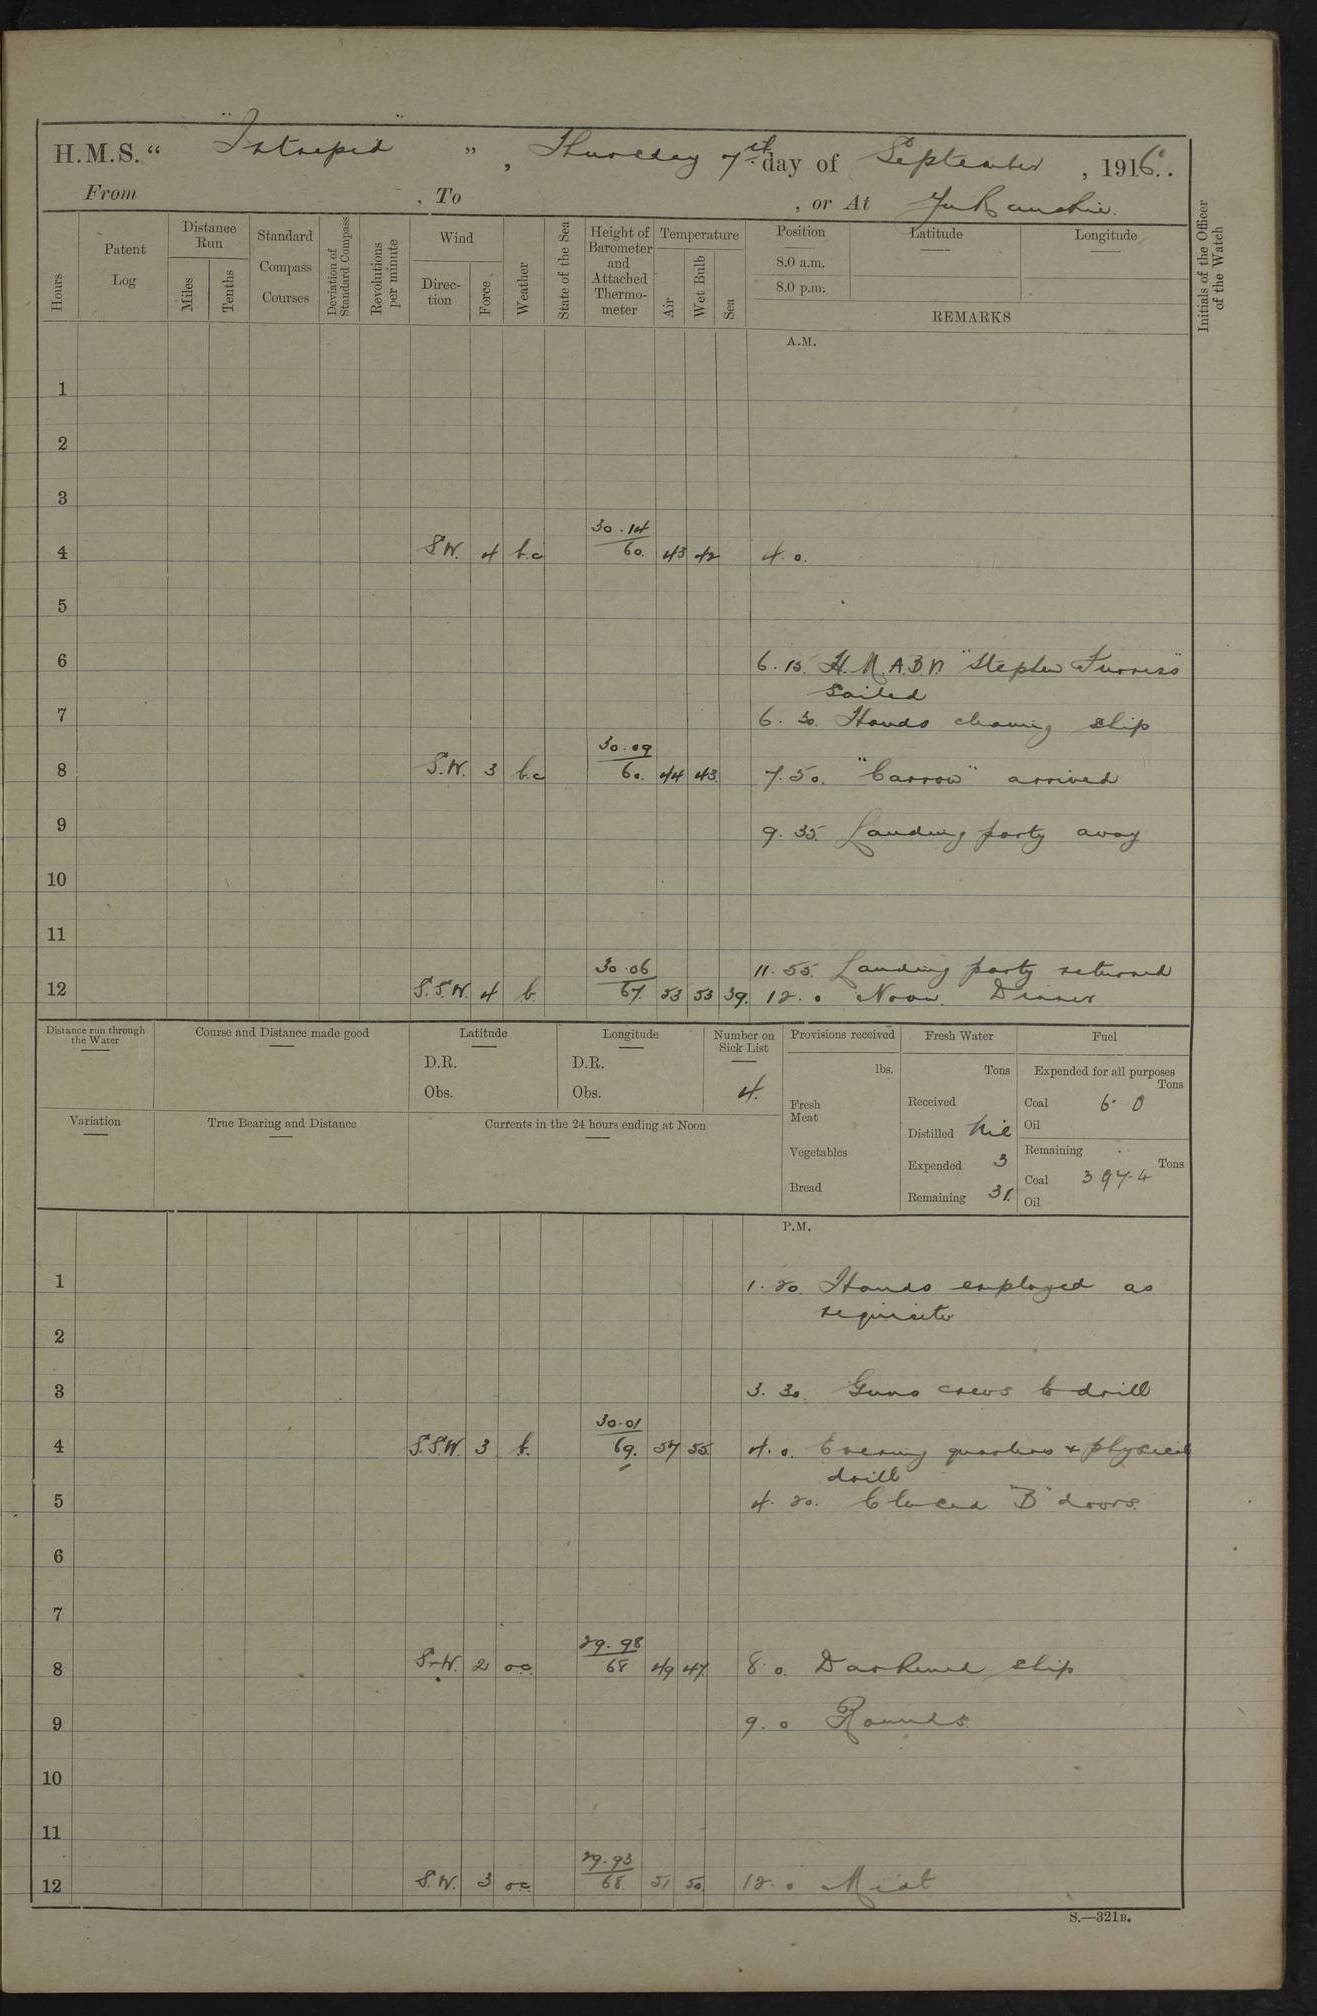 H.M.S. “ "Intrepid" ” , Thursday 7th day of September , 1916.
From , To , or At Yukanskie.
Hours Patent Log Distance Run Miles Tenths Standard Compass Courses Deviation of Standard Compass Revolutions per minute Wind Direction Force Weather State of the Sea Height of Barometer and Attached Thermometer Temperature Air Wet Bulb Sea Position Latitude Longitude Initials of the Officer of the Watch
8.0 a.m.
8.0 p.m.
REMARKS
A.M.
1
2
3
4 S.W. 4 b.c 30.14 60. 43 42 4. 0.
5
6 6. 15. H.M.A.B.V. "Stephen Furness"
sailed
7 6. 30. Hands cleaning ship
8 S.W. 3 b.c 30.09 60. 44 43. 7. 50. "Carrow" arrived
9 9. 35. Landing party away
10
11
11. 55. Landing party returned
12 S.S.W. 4 b. 30.06 67. 53 53 39. 12. 0 Noon. Dinner
Distance run through the Water Course and Distance made good Latitude Longitude Number on Sick List Provisions received Fresh Water Fuel
D.R. D.R. lbs. Tons Expended for all purposes Tons
Obs. Obs. 4. Fresh Meat Received Coal 6. 0
Variation True Bearing and Distance Currents in the 24 hours ending at Noon Distilled Nil Oil
Vegetables Expended 3 Remaining Tons
Coal 397.4
Bread Remaining 31. Oil
P.M.
1 1. 20. Hands employed as
requisite
2
3 3. 30. Guns crews to drill
4 S.S.W. 3 b. 30.01 69. 57 55. 4. 0. Evening quarters & physical
drill
5 4. 20. Closed "B" doors.
6
7
8 S-W. 2 o.c. 29.98 68 49 47. 8. 0. Darkened ship
9 9. 0 Rounds.
10
11
12 S.W. 3 o.c. 29.93 68. 51 50. 12. 0 Midt
S.—321B.